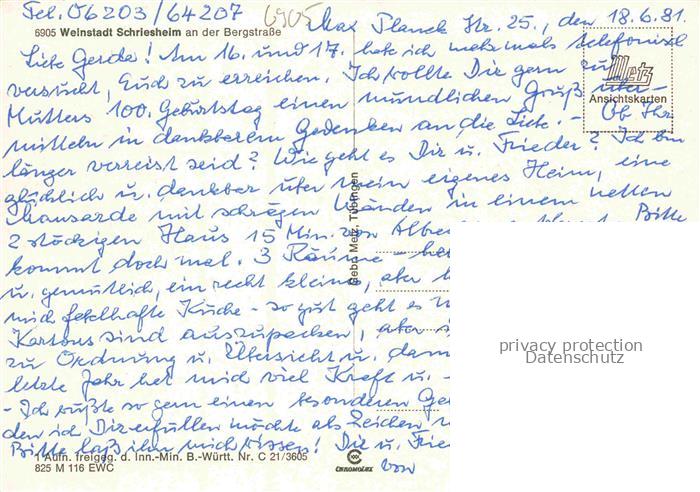 Tel. 06203/64207 6905 Max Planck Str. 25., den 18.6.81.
6905 Weinstadt Schriesheim an der Bergstraße
Liebe Gerda! Am 16. und 17. habe ich mehrmals telefonisch
versucht, Euch zu erreichen. Ich wollte Dir gern zu
Metz
Ansichtskarten
Mutters 100. Geburtstag einen mündlichen Gruß über-
mitteln in dankbarem Gedenken an die Liebe. - Ob Ihr
länger verreist seid? Wie geht es Dir u. Frieder? Ich bin
glücklich u. dankbar über mein eigenes Heim, eine
Mansarde mit schrägen Wänden in einem netten
2 stöckigen Haus 15 Min. von
Bitte
kommt doch mal. 3 Räume -
u. gemütlich, ein recht kleine, aber
mich fabelhafte Küche - so gut geht es
Kartons sind auszupacken, aber
zu Ordnung u. Übersicht u.
letzte Jahr hat mich viel Kraft u. -
- Ich wüßte so gern einen besonderen
den ich Dir erfüllen möchte als Zeichen
Bitte laß ihn mich wissen! Dir u.
von
Gebr. Metz, Tübingen
Aufn. freigeg. d. Inn.-Min. B.-Württ. Nr. C 21/3605
825 M 116 EWC
CHROMOLUX
privacy protection
Datenschutz